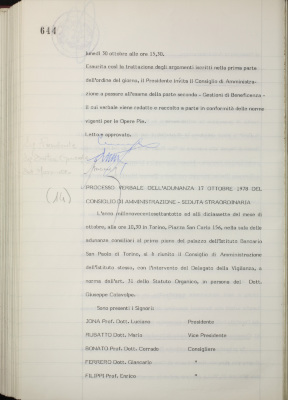 644
lunedì 30 ottobre alle ore 15,30.
Esaurita così la trattazione degli argomenti iscritti nella prima parte
dell'ordine del giorno, il Presidente invita il Consiglio di Amministra-
zione a passare all'esame della parte seconda - Gestioni di Beneficenza -
il cui verbale viene redatto e raccolto a parte in conformità delle norme
vigenti per le Opere Pie.
Letto e approvato.
(14)
PROCESSO VERBALE DELL'ADUNANZA 17 OTTOBRE 1978 DEL
CONSIGLIO DI AMMINISTRAZIONE - SEDUTA STRAORDINARIA
L'anno millenovecentosettantotto ed alli diciassette del mese di
ottobre, alle ore 15,30 in Torino, Piazza San Carlo 156, nella sala delle
adunanze consiliari al primo piano del palazzo dell'Istituto Bancario
San Paolo di Torino, si è riunito il Consiglio di Amministrazione
dell'Istituto stesso, con l'intervento del Delegato della Vigilanza, a
norma dell'art. 31 dello Statuto Organico, in persona del Dott.
Giuseppe
Sono presenti i Signori:
JONA Prof. Dott. Luciano Presidente
RUSATTO Dott. Mario Vice Presidente
BONATO Prof. Dott. Corrado Consigliere
FERRERO Dott. Giancarlo "
FILIPPI Prof. Enrico "